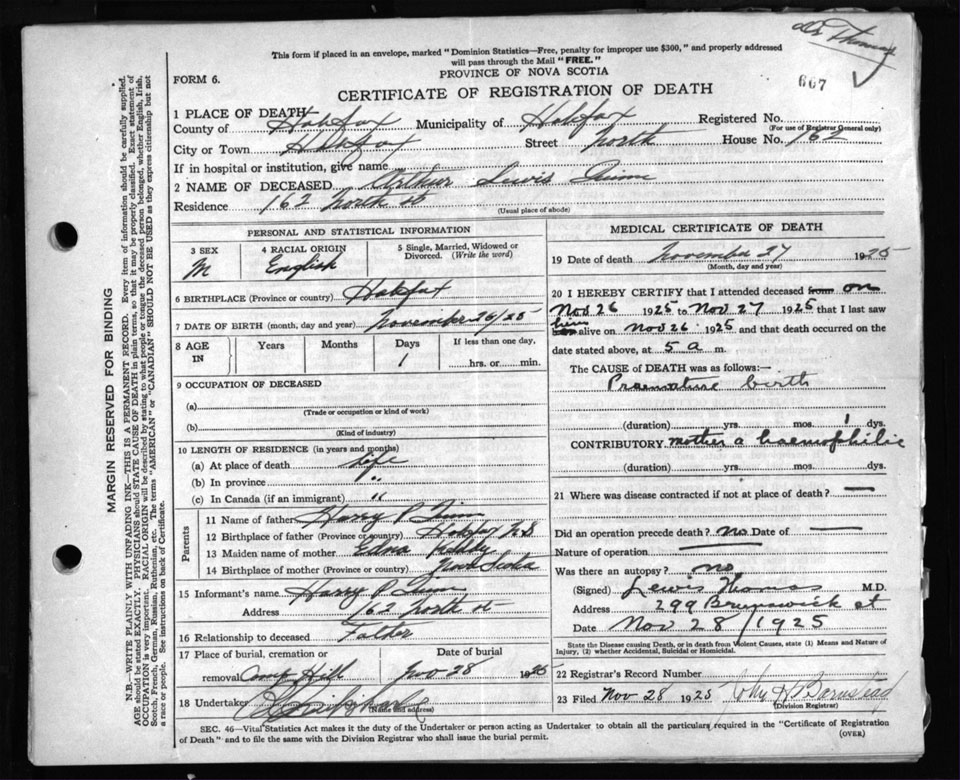 Dr Thomas
This form if placed in an envelope, marked "Dominion Statistics—Free, penalty for improper use $300," and properly addressed
will pass through the Mail "FREE."
607
FORM 6.
PROVINCE OF NOVA SCOTIA
CERTIFICATE OF REGISTRATION OF DEATH
1 PLACE OF DEATH
County of Halifax Municipality of Halifax Registered No.
(For use of Registrar General only)
City or Town Halifax Street North House No. 162
If in hospital or institution, give name
2 NAME OF DECEASED Arthur Lewis
Residence 162 North st
(Usual place of abode)
PERSONAL AND STATISTICAL INFORMATION
3 SEX M
4 RACIAL ORIGIN English
5 Single, Married, Widowed or Divorced. (Write the word)
6 BIRTHPLACE (Province or country) Halifax
7 DATE OF BIRTH (month, day and year) November 26/25
8 AGE IN Years Months Days 1 If less than one day, hrs. or min.
9 OCCUPATION OF DECEASED
(a)
(Trade or occupation or kind of work)
(b)
(Kind of industry)
10 LENGTH OF RESIDENCE (in years and months)
(a) At place of death life
(b) In province "
(c) In Canada (if an immigrant) "
Parents
11 Name of father Harry P
12 Birthplace of father (Province or country) Halifax N S
13 Maiden name of mother Edna
14 Birthplace of mother (Province or country) Nova Scotia
15 Informant's name Harry P
Address 162 North st
16 Relationship to deceased Father
17 Place of burial, cremation or removal Camp Hill
Date of burial Nov 28 1925
18 Undertaker
(Name and address)
MEDICAL CERTIFICATE OF DEATH
19 Date of death November 27 1925
(Month, day and year)
20 I HEREBY CERTIFY that I attended deceased from on
Nov 26 1925 to Nov 27 1925 that I last saw
him alive on Nov 26 1925 and that death occurred on
date stated above, at 5 a m.
The CAUSE of DEATH was as follows:—
Praemature birth
(duration) yrs. mos. 1 dys.
CONTRIBUTORY mother a haemophilic
(duration) yrs. mos. dys.
21 Where was disease contracted if not at place of death? —
Did an operation precede death? no Date of —
Nature of operation —
Was there an autopsy? no
(Signed) Lewis Thomas M.D.
Address 299 Brunswick st
Date Nov 28/1925
State the Disease causing Death, or in death from Violent Causes, state (1) Means and Nature of
Injury, (2) whether Accidental, Suicidal or Homicidal.
22 Registrar's Record Number
23 Filed Nov 28 1925 John H Barnstead
(Division Registrar)
SEC. 46—Vital Statistics Act makes it the duty of the Undertaker or person acting as Undertaker to obtain all the particulars required in the "Certificate of Registration
of Death" and to file the same with the Division Registrar who shall issue the burial permit.
(OVER)
MARGIN RESERVED FOR BINDING
N.B.—WRITE PLAINLY WITH UNFADING INK—THIS IS A PERMANENT RECORD. Every item of information should be carefully supplied.
AGE should be stated EXACTLY. PHYSICIANS should STATE CAUSE OF DEATH in plain terms, so that it may be properly classified. Exact statement of
OCCUPATION is very important. RACIAL ORIGIN will be described by stating to what people or tongue the deceased person belonged, whether English, Irish,
Scotch, French, German, Russian, Ruthenian, etc. The terms "AMERICAN" or "CANADIAN" SHOULD NOT BE USED as they express citizenship but not
a race or people. See instructions on back of Certificate.